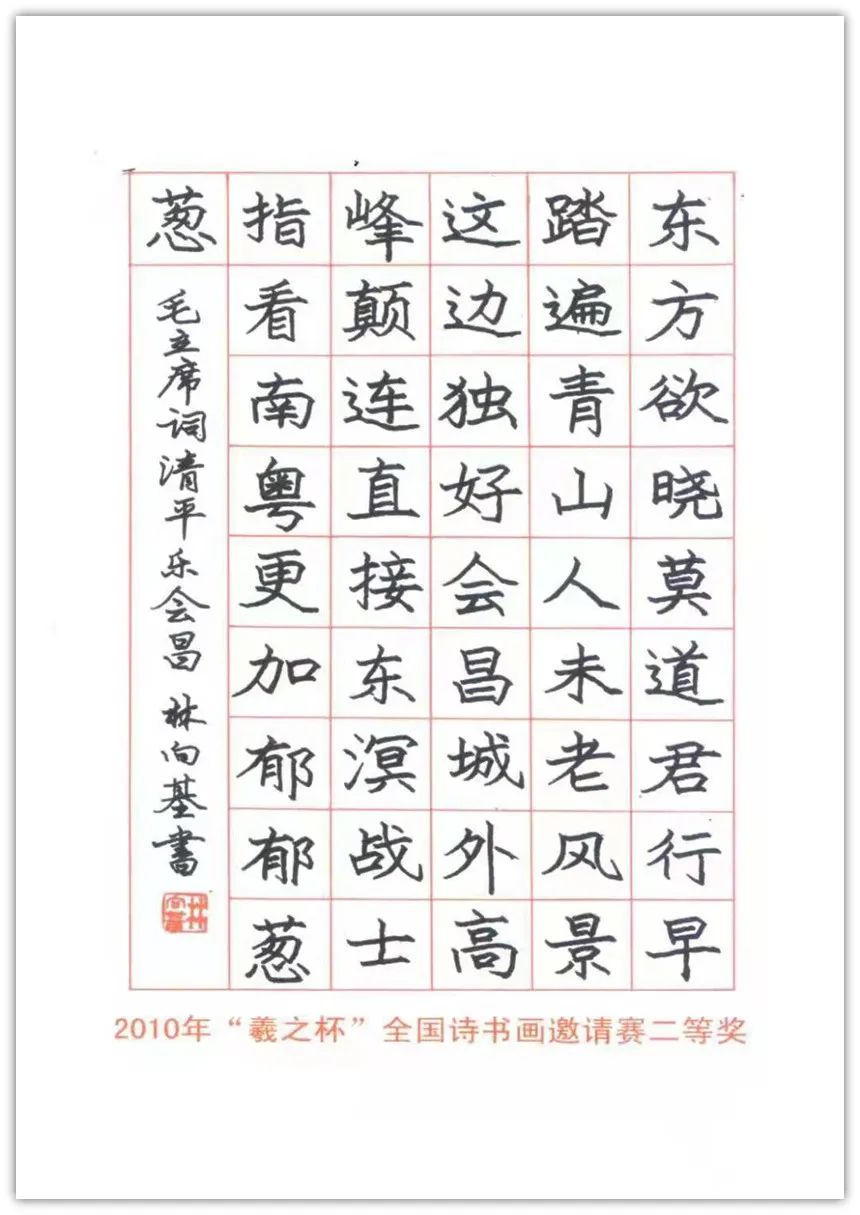 东方欲晓莫道君行早
踏遍青山人未老风景
这边独好会昌城外高
峰颠连直接东溟战士
指看南粤更加郁郁葱
葱
毛主席词清平乐会昌 林向基书
林向基
2010年“羲之杯”全国诗书画邀请赛二等奖